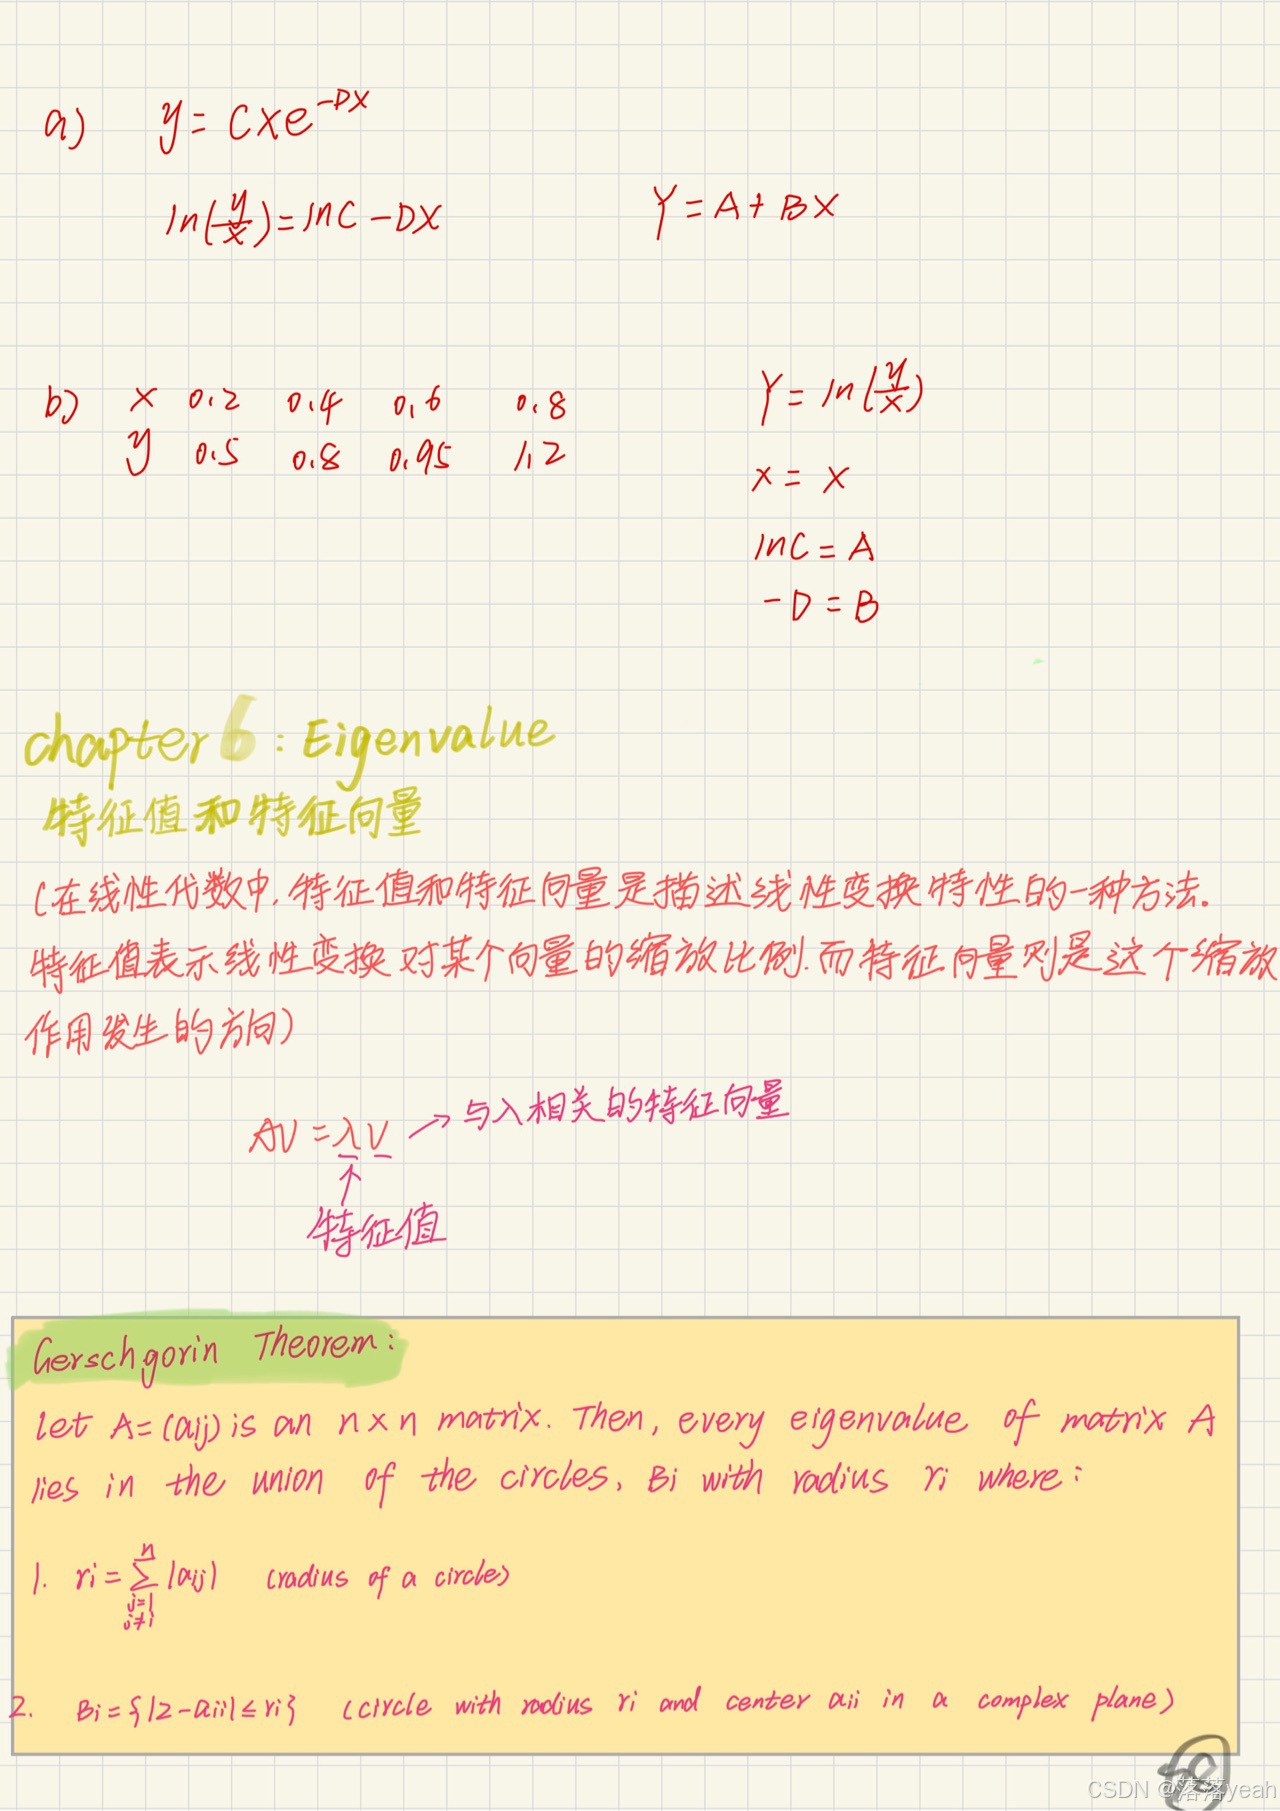 a) y = Cxe^{-Dx}
ln(y/x) = lnC - Dx
Y = A + BX
b) x 0.2 0.4 0.6 0.8
y 0.5 0.8 0.95 1.2
Y = ln(y/x)
x = x
lnC = A
-D = B
chapter 6: Eigenvalue
特征值和特征向量
(在线性代数中,特征值和特征向量是描述线性变换特性的一种方法。
特征值表示线性变换对某个向量的缩放比例.而特征向量则是这个缩放
作用发生的方向)
AV = λV → 与λ相关的特征向量
↑
特征值
Gerschgorin Theorem:
let A=(aij) is an n×n matrix. Then, every eigenvalue of matrix A
lies in the union of the circles, Bi with radius ri where:
1. ri = ∑_{j=1, j≠i}^{n} |aij| (radius of a circle)
2. Bi = {|z-aii| ≤ ri} (circle with radius ri and center aii in a complex plane)
CSDN @落落yeah